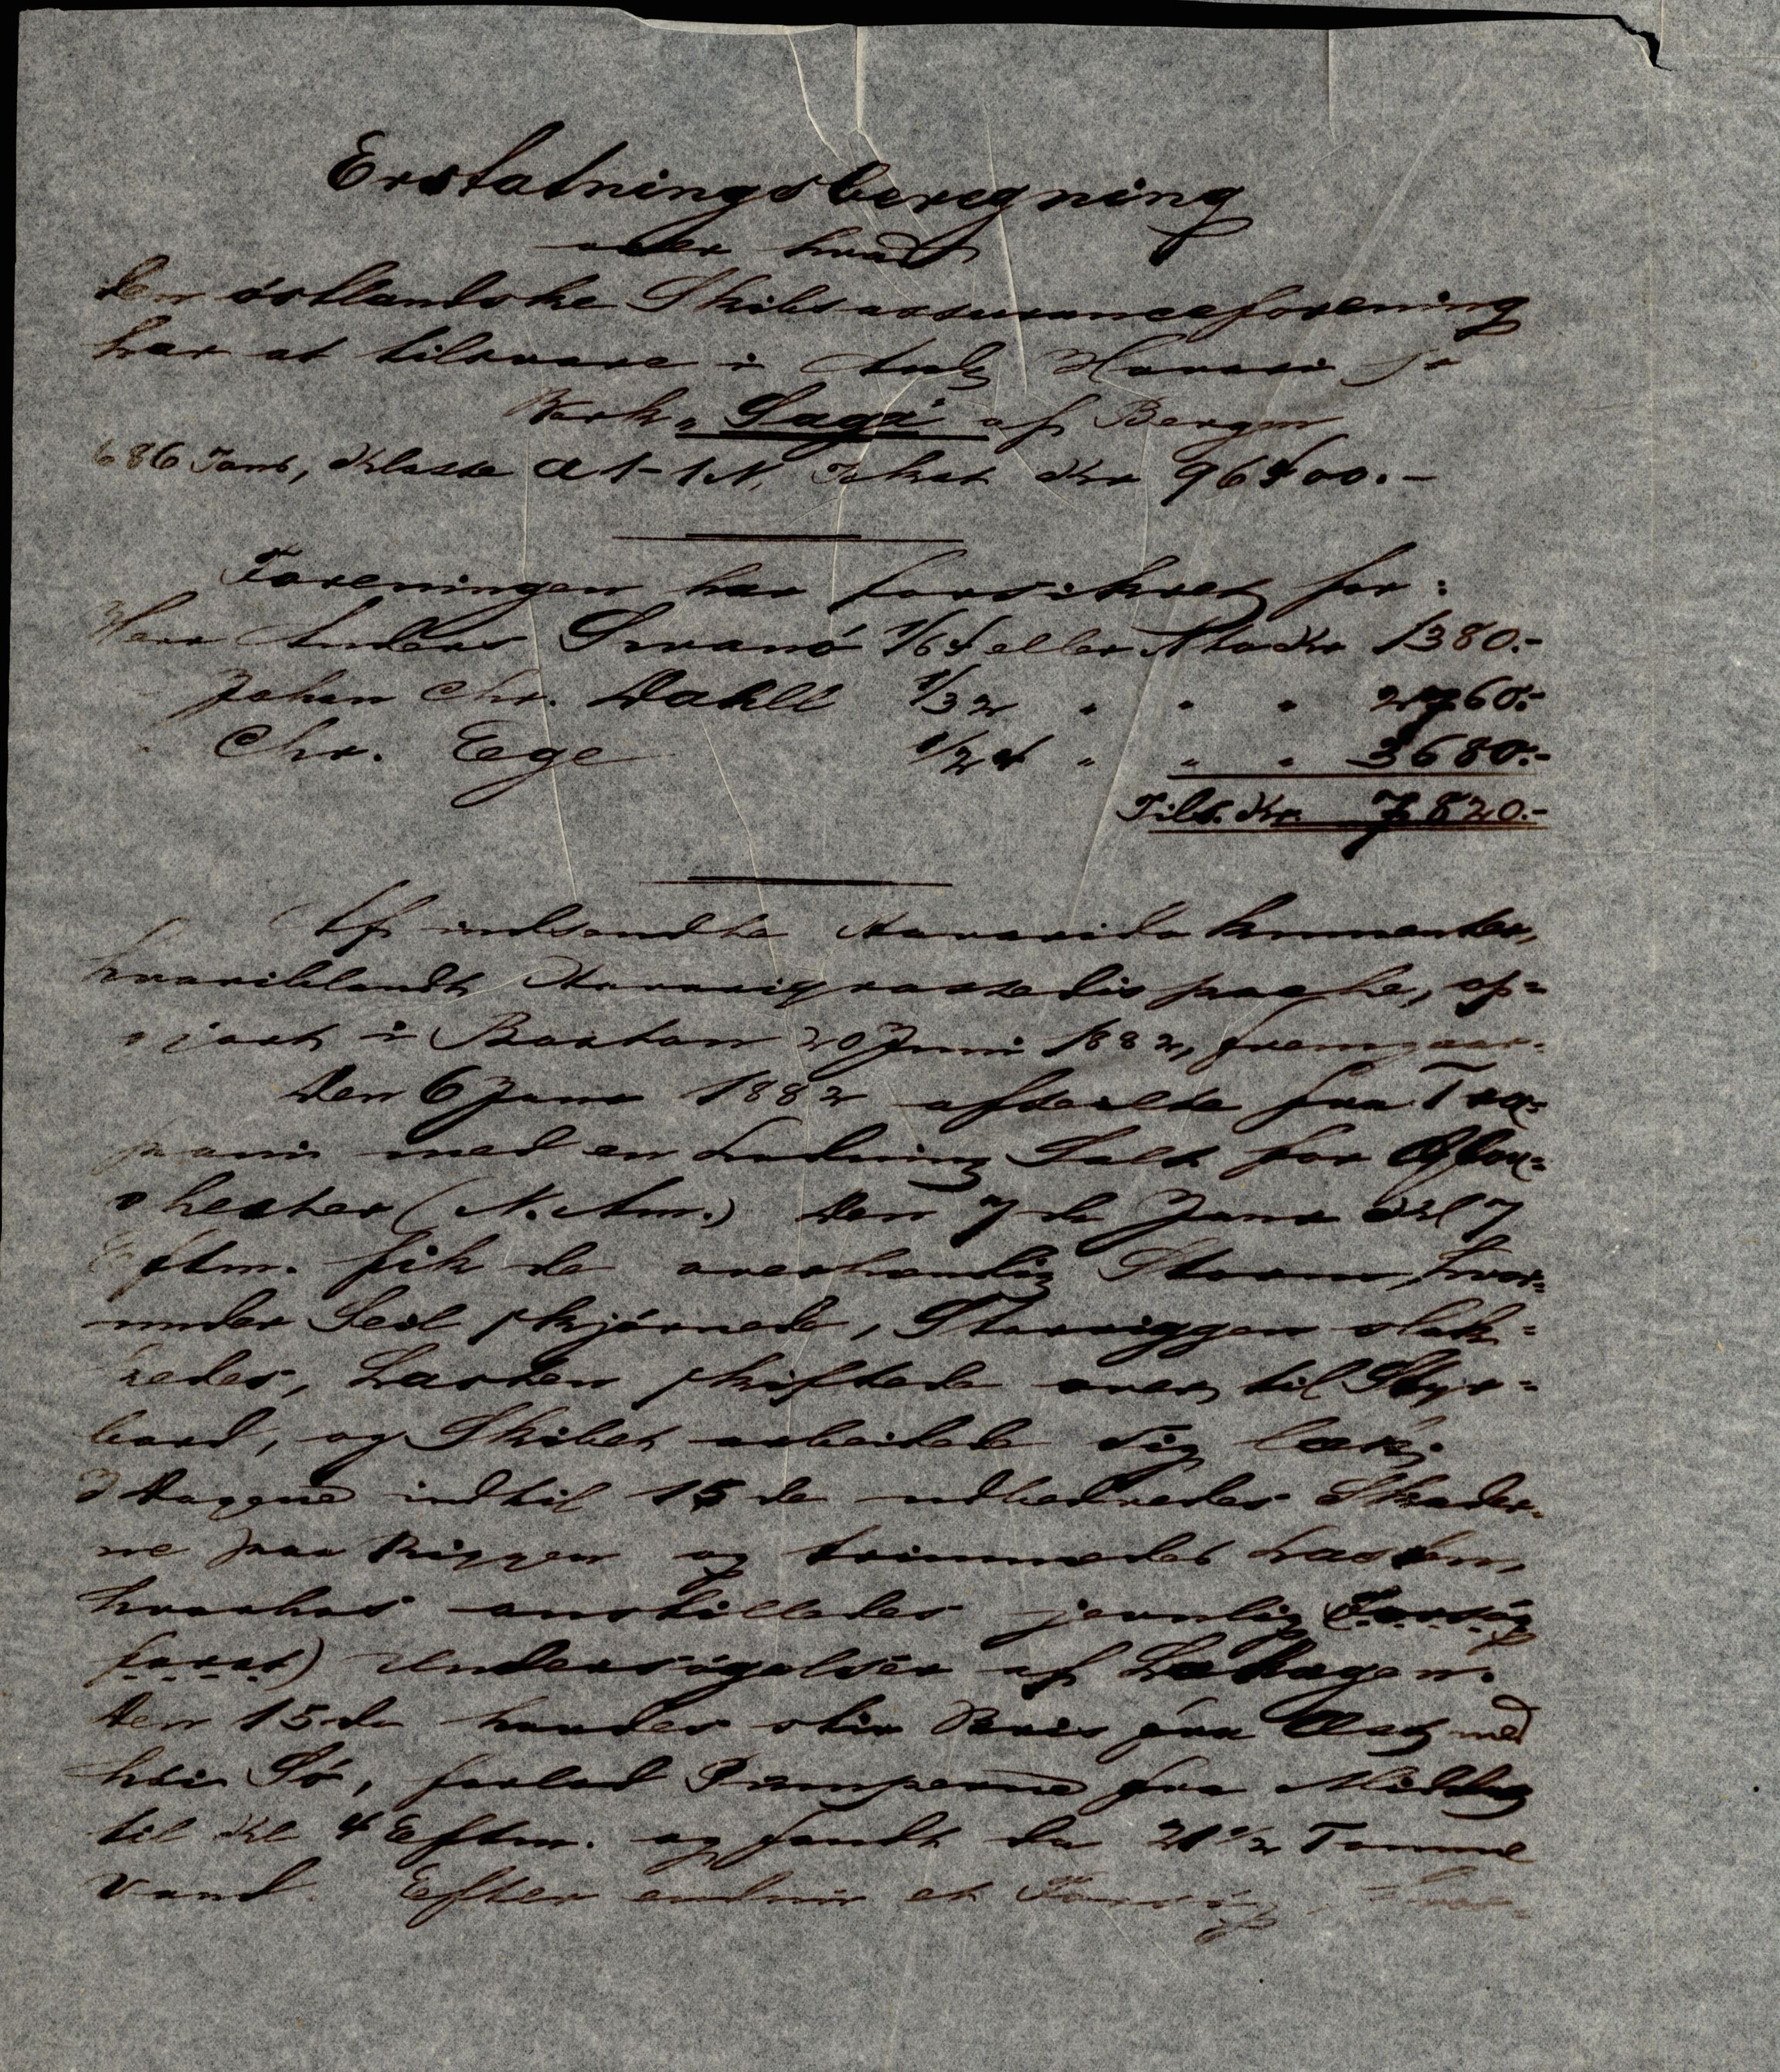 Erstatningsberegning
over hvad
den østlandske Skibsassuranceforening
har at tilsvare i Anl. Havari pr
Bark "Saga" af Bergen
686 Tons, Klasse A 1-1 N, Takst Kr 96500.-
Foreningen har forsikret for:
Herr Anders Svanø 1/64 eller Kr 1380.-
Johan Chr. Dahll 1/32 " " " 2760.-
" Chr. Ege 1/24 " " " 3680.-
Tils. Kr. 7820.-
Af indsendte Havaridokumenter,
hvoriblandt Havarigrossedispache, op=
gjort i Boston 20 Juni 1882, fremgaar:
Den 6 Janr 1882 afseilte fra Tra=
pani med en Ladning Salt for Glou=
chester (N. Am.) Den 7de Janr Kl 7
Eftm. fik de overhændig Storm, hvor=
under Seil skjørnede, Storriggen slak=
kedes, Lasten skiftede over til Styr=
bord, og Skibet arbeidede sig læk.
I Dagene indtil 15de udbedredes Skader=
ne paa Riggen og trimmedes Lasten,
hvorhos anstilledes jevnlig (Forsøg
forat) Undersøgelser af Lækagen.
Den 15de havdes stiv Bris fra Ost med
høi Sø, forlod Pumperne fra Middag
til Kl 4 Eftm. og fandt da 21 1/2 Tomme
Vand. Efter endnu et Forsøg